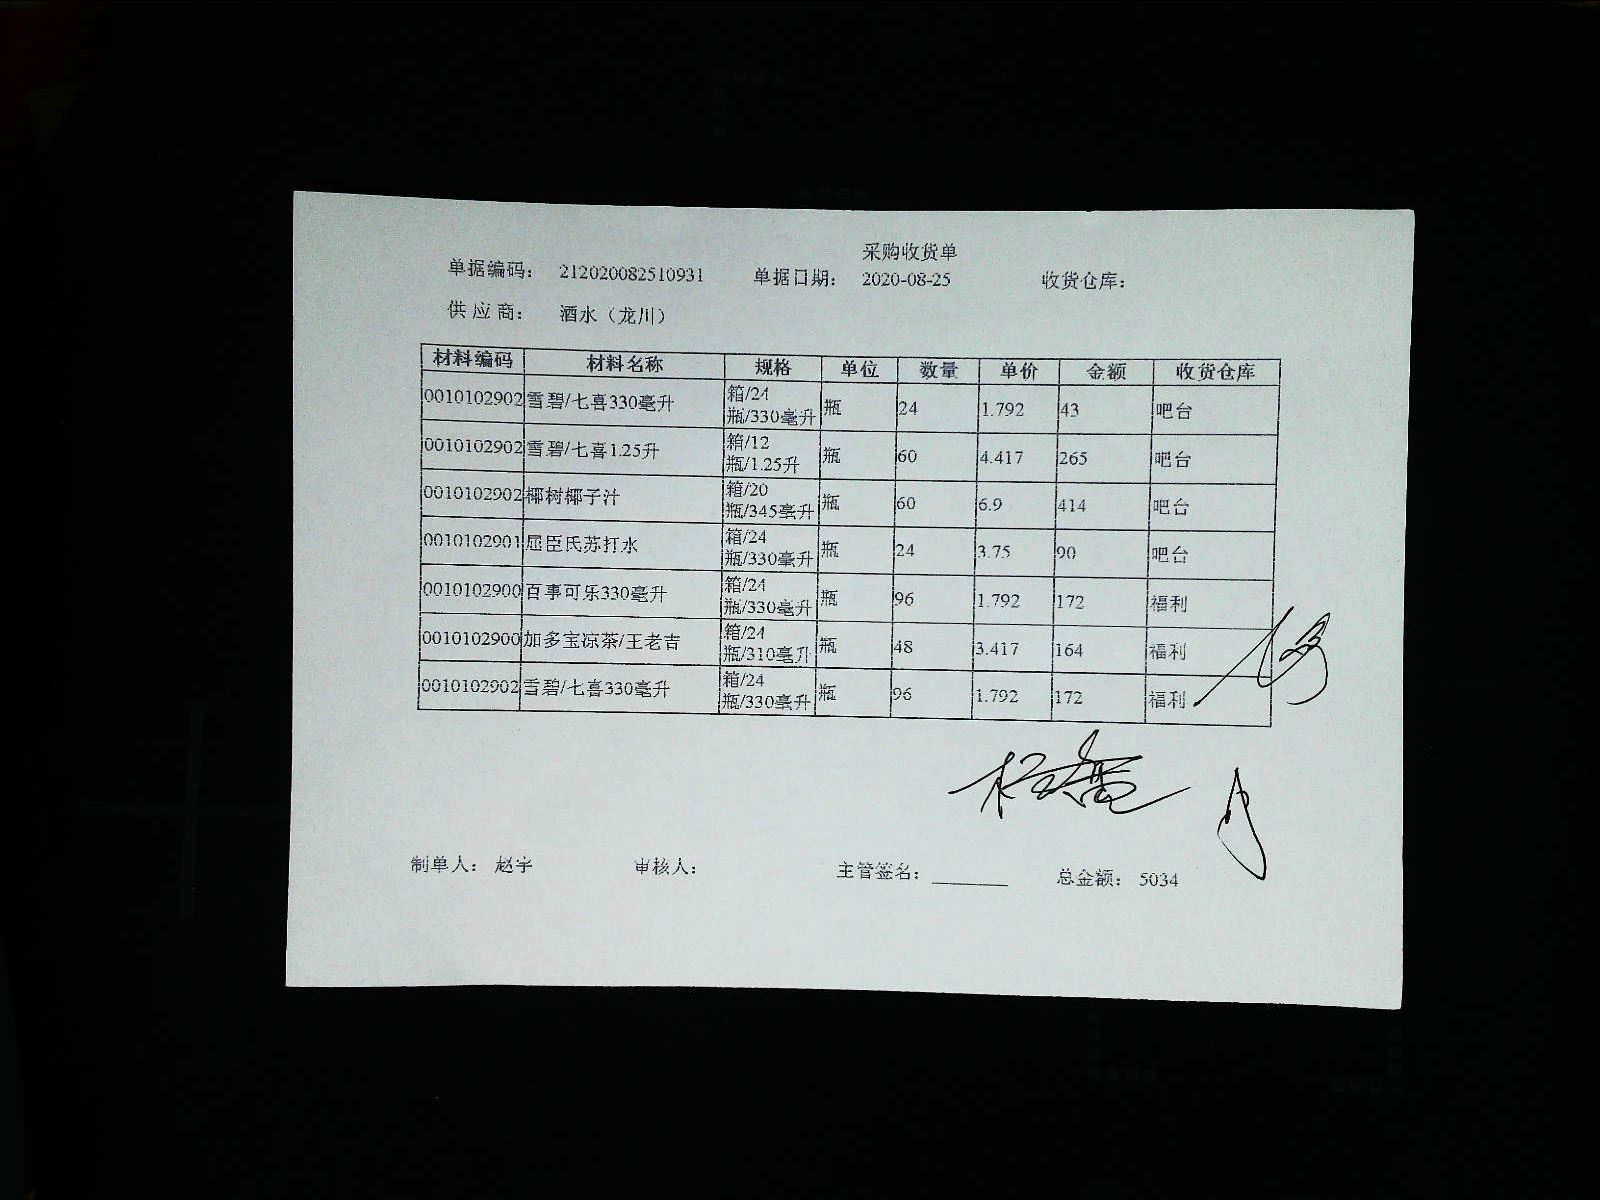 采购收货单
单据编码： 212020082510931 单据日期： 2020-08-25 收货仓库：
供 应 商： 酒水（龙川）
材料编码 材料名称 规格 单位 数量 单价 金额 收货仓库
0010102902 雪碧/七喜330毫升 箱/24瓶/330毫升 瓶 24 1.792 43 吧台
0010102902 雪碧/七喜1.25升 箱/12瓶/1.25升 瓶 60 4.417 265 吧台
0010102902 椰树椰子汁 箱/20瓶/345毫升 瓶 60 6.9 414 吧台
0010102901 屈臣氏苏打水 箱/24瓶/330毫升 瓶 24 3.75 90 吧台
0010102900 百事可乐330毫升 箱/24瓶/330毫升 瓶 96 1.792 172 福利
0010102900 加多宝凉茶/王老吉 箱/24瓶/310毫升 瓶 48 3.417 164 福利
0010102902 雪碧/七喜330毫升 箱/24瓶/330毫升 瓶 96 1.792 172 福利
制单人： 赵宇 审核人： 主管签名： 总金额： 5034